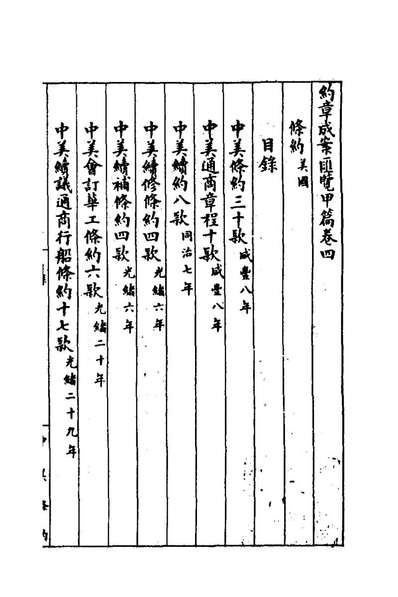 約章成案匯覽甲篇卷四
條約 美國
目錄
中美條約三十款 咸豐八年
中美通商章程十款 咸豐八年
中美續約八款 同治七年
中美續修條約四款 光緒六年
中美續補條約四款 光緒六年
中美會訂華工條約六款 光緒二十年
中美續議通商行船條約十七款 光緒二十九年